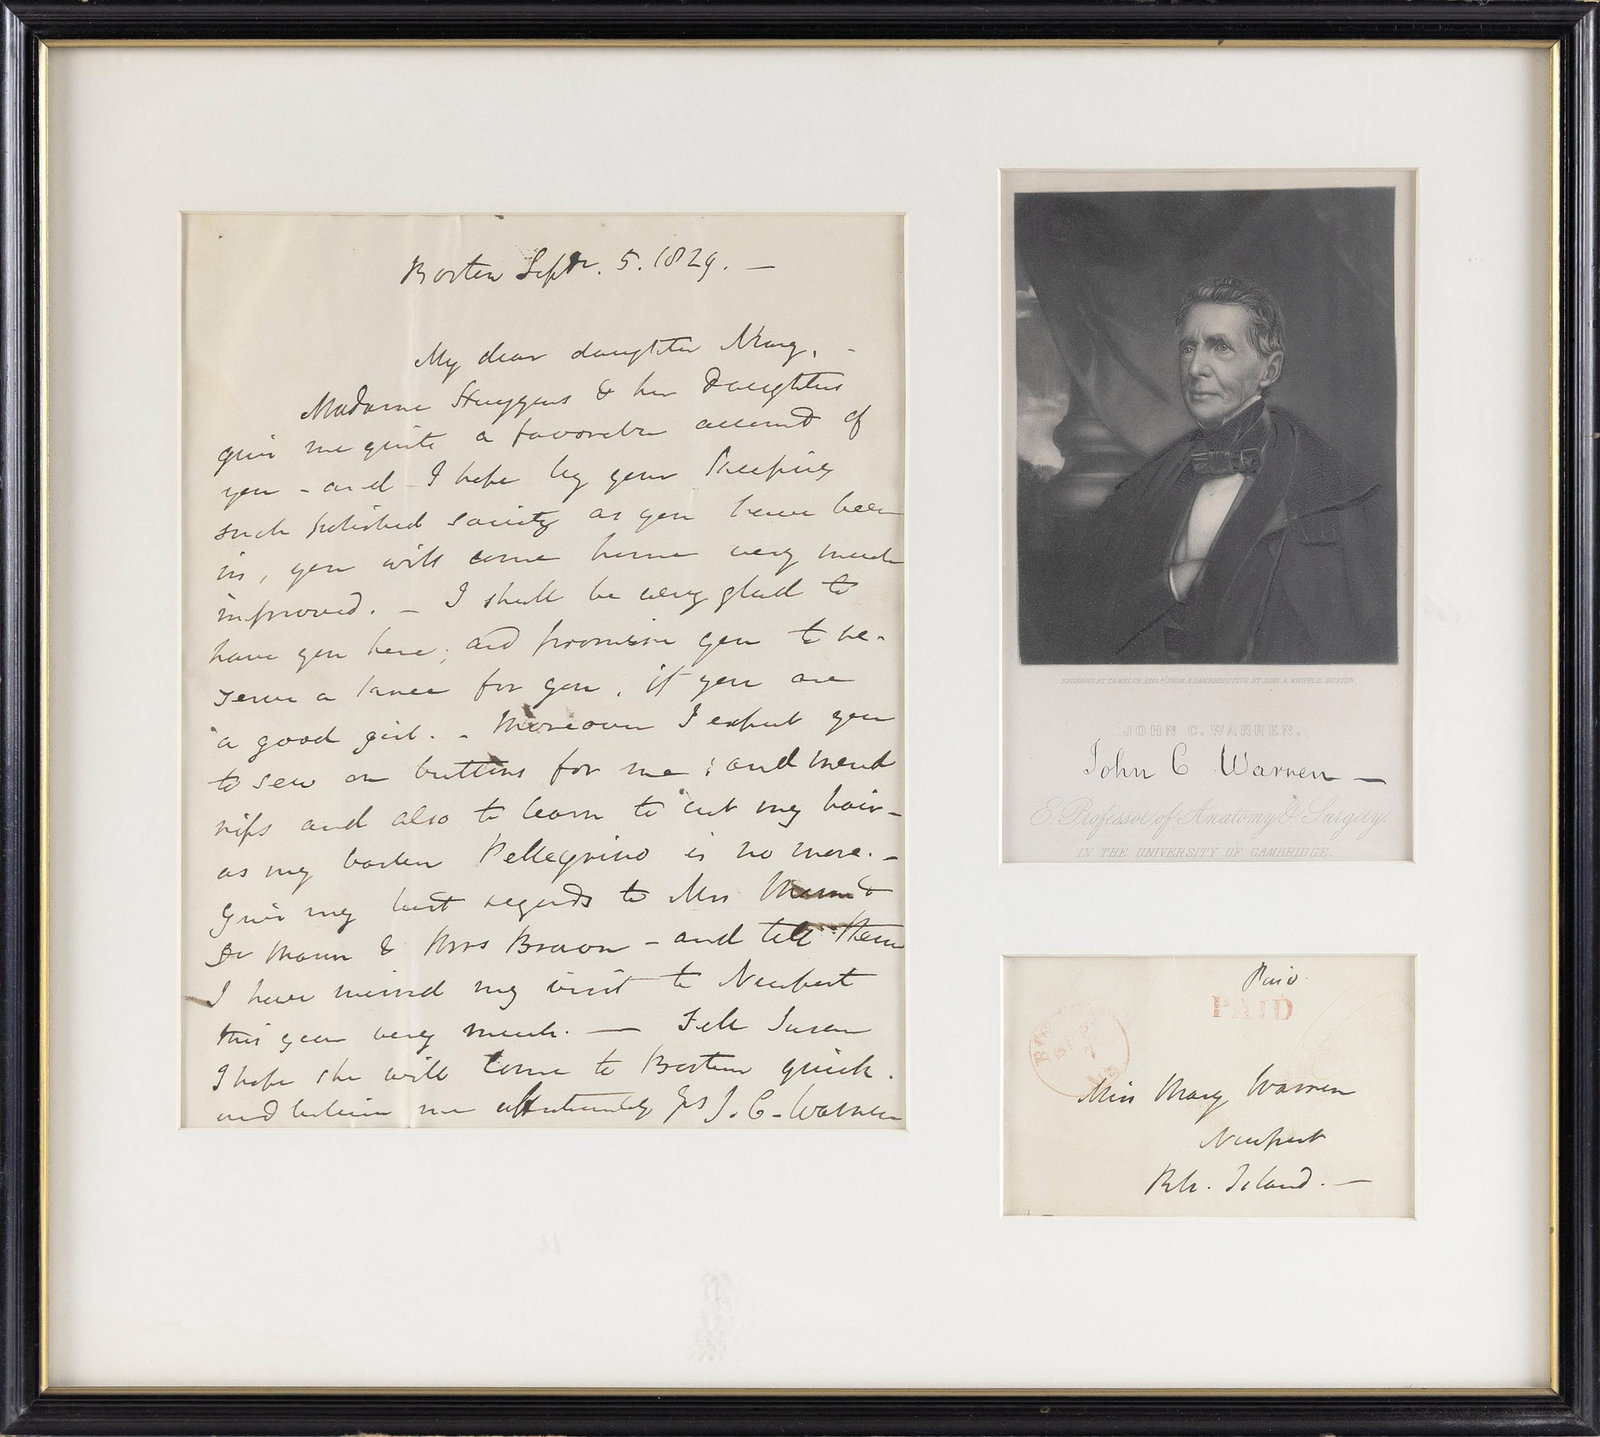 Boston Septr. 5. 1829. —
My dear daughter Mary, -
Madame Huygens & her Daughters
give me quite a favorable account of
you - and I hope by your keeping
such polished society as you have been
in, you will come home very much
improved. - I shall be very glad to
have you here; and promise you to re-
serve a place for you, if you are
a good girl. - Moreover I expect you
to sew on buttons for me; and mend
rips and also to learn to cut my hair -
as my barber Pellegrino is no more. -
Give my best regards to Mrs Mann &
Dr Mann & Mrs Brown - and tell them
I have missed my visit to Newport
this year very much. — Tell Susan
I hope she will come to Boston quick.
and believe me affectionately Yrs J. C. Warren
ENGRAVED BY T.B. WELCH, PHILA. FROM A DAGUERREOTYPE BY JOHN A. WHIPPLE, BOSTON.
JOHN C. WARREN.
John C Warren —
E. Professor of Anatomy & Surgery.
IN THE UNIVERSITY OF CAMBRIDGE.
Paid
PAID
Miss Mary Warren
Newport
Rh. Island. —